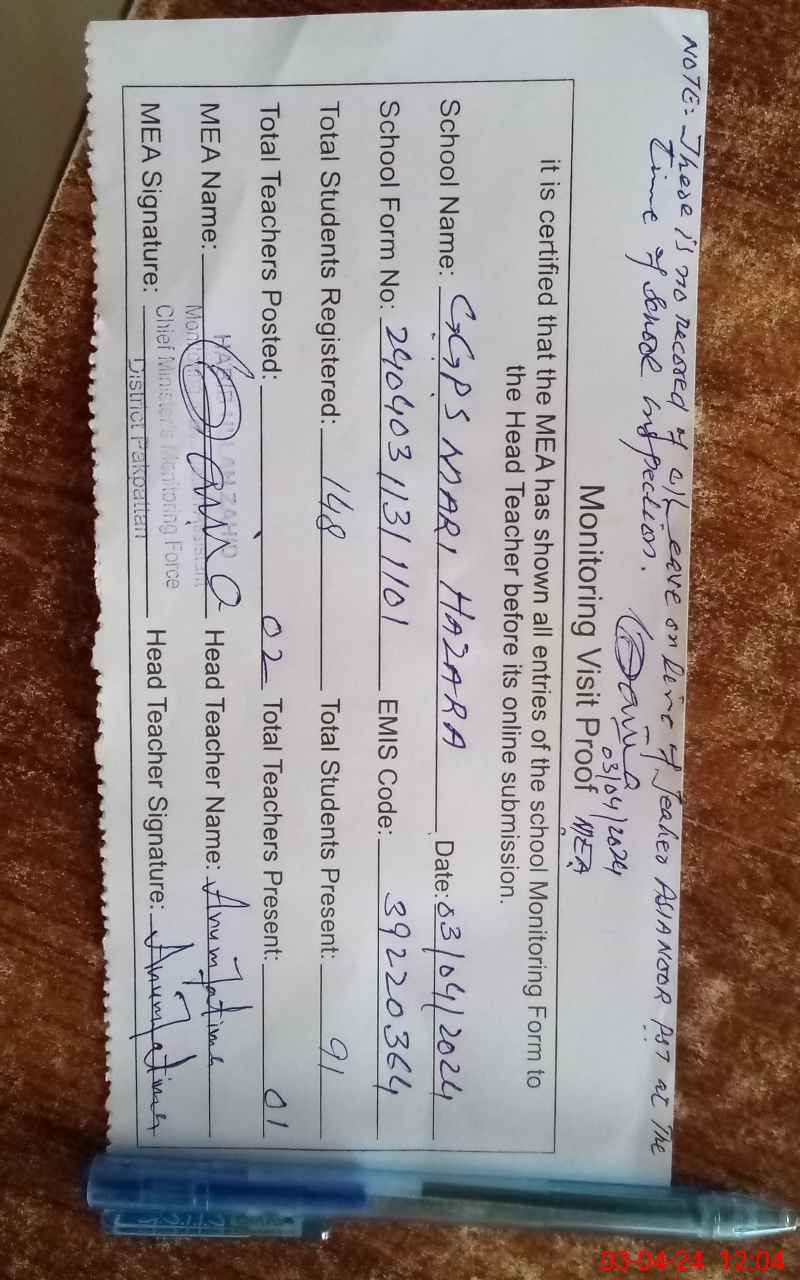 NOTE:- There is no recored of c/Leave on line of Teaher ASIA NOOR PST at the
time of School inspection.
03/04/2024
MEA
Monitoring Visit Proof
it is certified that the MEA has shown all entries of the school Monitoring Form to
the Head Teacher before its online submission.
School Name: GGPS MARI HAZARA Date: 03/04/2024
School Form No: 240403113 1101 EMIS Code: 39220364
Total Students Registered: 148 Total Students Present: 91
Total Teachers Posted: 02 Total Teachers Present: 01
MEA Name: Head Teacher Name: Anum Fatima
Chief Minister's Monitoring Force
District Pakpattan
MEA Signature: Head Teacher Signature: Anum Fatima
03-04-24 12:04